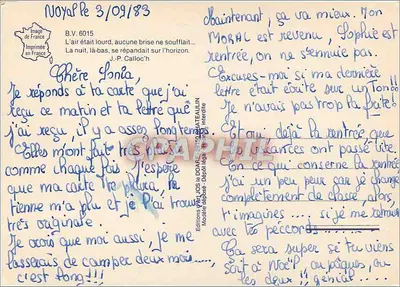 Noyalle 3/09/83
Image
de France
Imprimée
en France
B.V. 6015
L'air était lourd, aucune brise ne soufflait...
La nuit, là-bas, se répandait sur l'horizon.
J.-P. Calloc'h
Chère Sonia,
Je réponds à ta carte que j'ai
reçu ce matin et ta lettre que
j'ai reçu, il y a assez longtemps
Elles m'ont fait très
comme chaque fois J'espère
que ma carte te plaira, la
tienne m'a plu et je l'ai trouvé
très originale.
Je crois que moi aussi, je me
lasserais de camper deux mois....
c'est long!!!
Editions d'Art JOS le DOARÉ - CHATEAULIN
Modèle déposé - Dépôt légal interdite
CPAPHIL
Maintenant, ça va mieux. Mon
MORAL est revenu, Sophie est
rentrée, on ne s'ennuie pas.
Excuses-moi si ma dernière
lettre était écrite sur un Ton !!
Je n'avais pas trop la forte!
Et oui déjà la rentrée, que
les vacances ont passé vite.
En ce qui conserne la rentrée
j'ai un peu peur car je change
complètement de classe, alors,
t'imagines .... si je me
avec tes
Ca sera super si tu viens
soit à Noël, ou pâques, ou
les deux!! génial ....